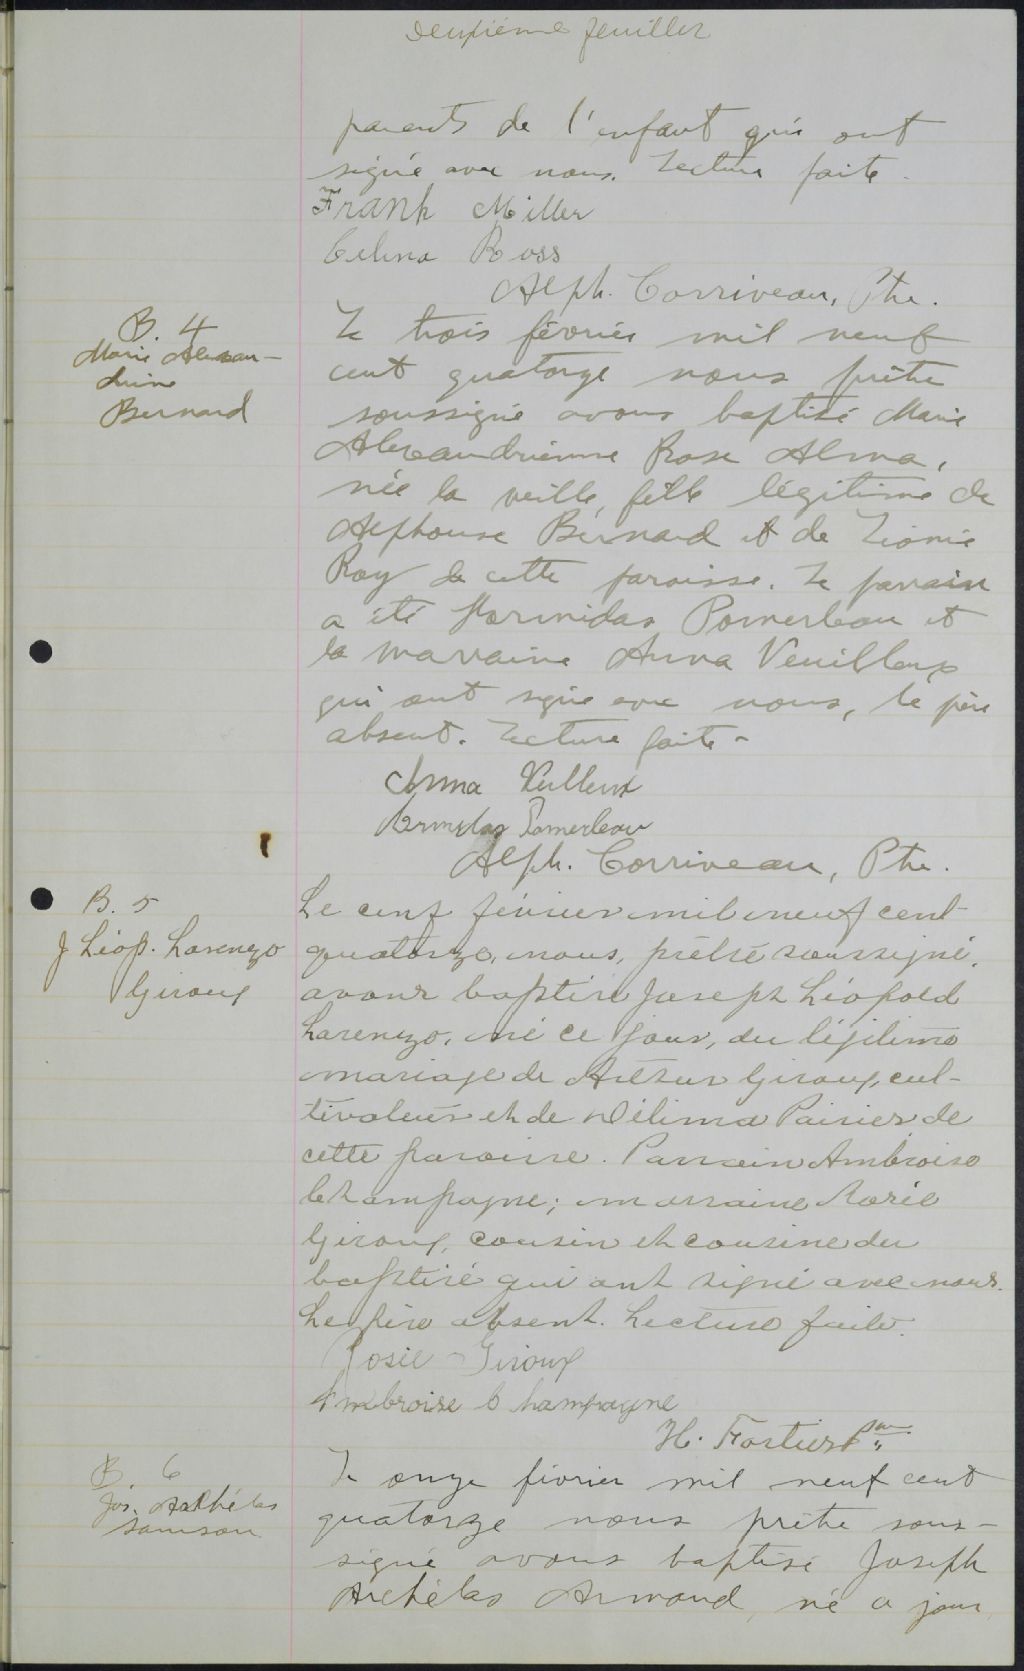 deuxième feuillet
parents de l'enfant qui ont
signé avec nous. Lecture faite.
Frank Miller
Celina Ross
Alph. Corriveau, Ptre.
B. 4
Marie Alexan-
drine
Bernard
Le trois février mil neuf
cent quatorze nous prêtre
soussigné avons baptisé Marie
Alexandrienne Rose Alma,
née la veille, fille légitime de
Alphonse Bernard et de Léonie
Roy de cette paroisse. Le parrain
a été Hormidas Pomerleau et
la marraine Anna Veuilleux
qui ont signé avec nous, le père
absent. Lecture faite -
Anna Veilleux
Ormidas Pomerleau
Alph. Corriveau, Ptre.
B. 5
J Léop. Larenzo
Giroux
Le cinq février mil neuf cent
quatorze, nous, prêtre soussigné,
avons baptisé Joseph Léopold
Larenzo, né ce jour, du légitime
mariage de Arthur Giroux, cul-
tivateur et de Délima Poirier de
cette paroisse. Parrain Ambroise
Champagne; marraine Rosée
Giroux, cousin et cousine du
baptisé qui ont signé avec nous.
Le père absent. Lecture faite.
Rosie Giroux
Ambroise Champagne
H. Fortier Ptre
B. 6
Jos. Archélas
Samson
Le onze février mil neuf cent
quatorze nous prêtre sous-
signé avons baptisé Joseph
Archélas Armand, né ce jour,